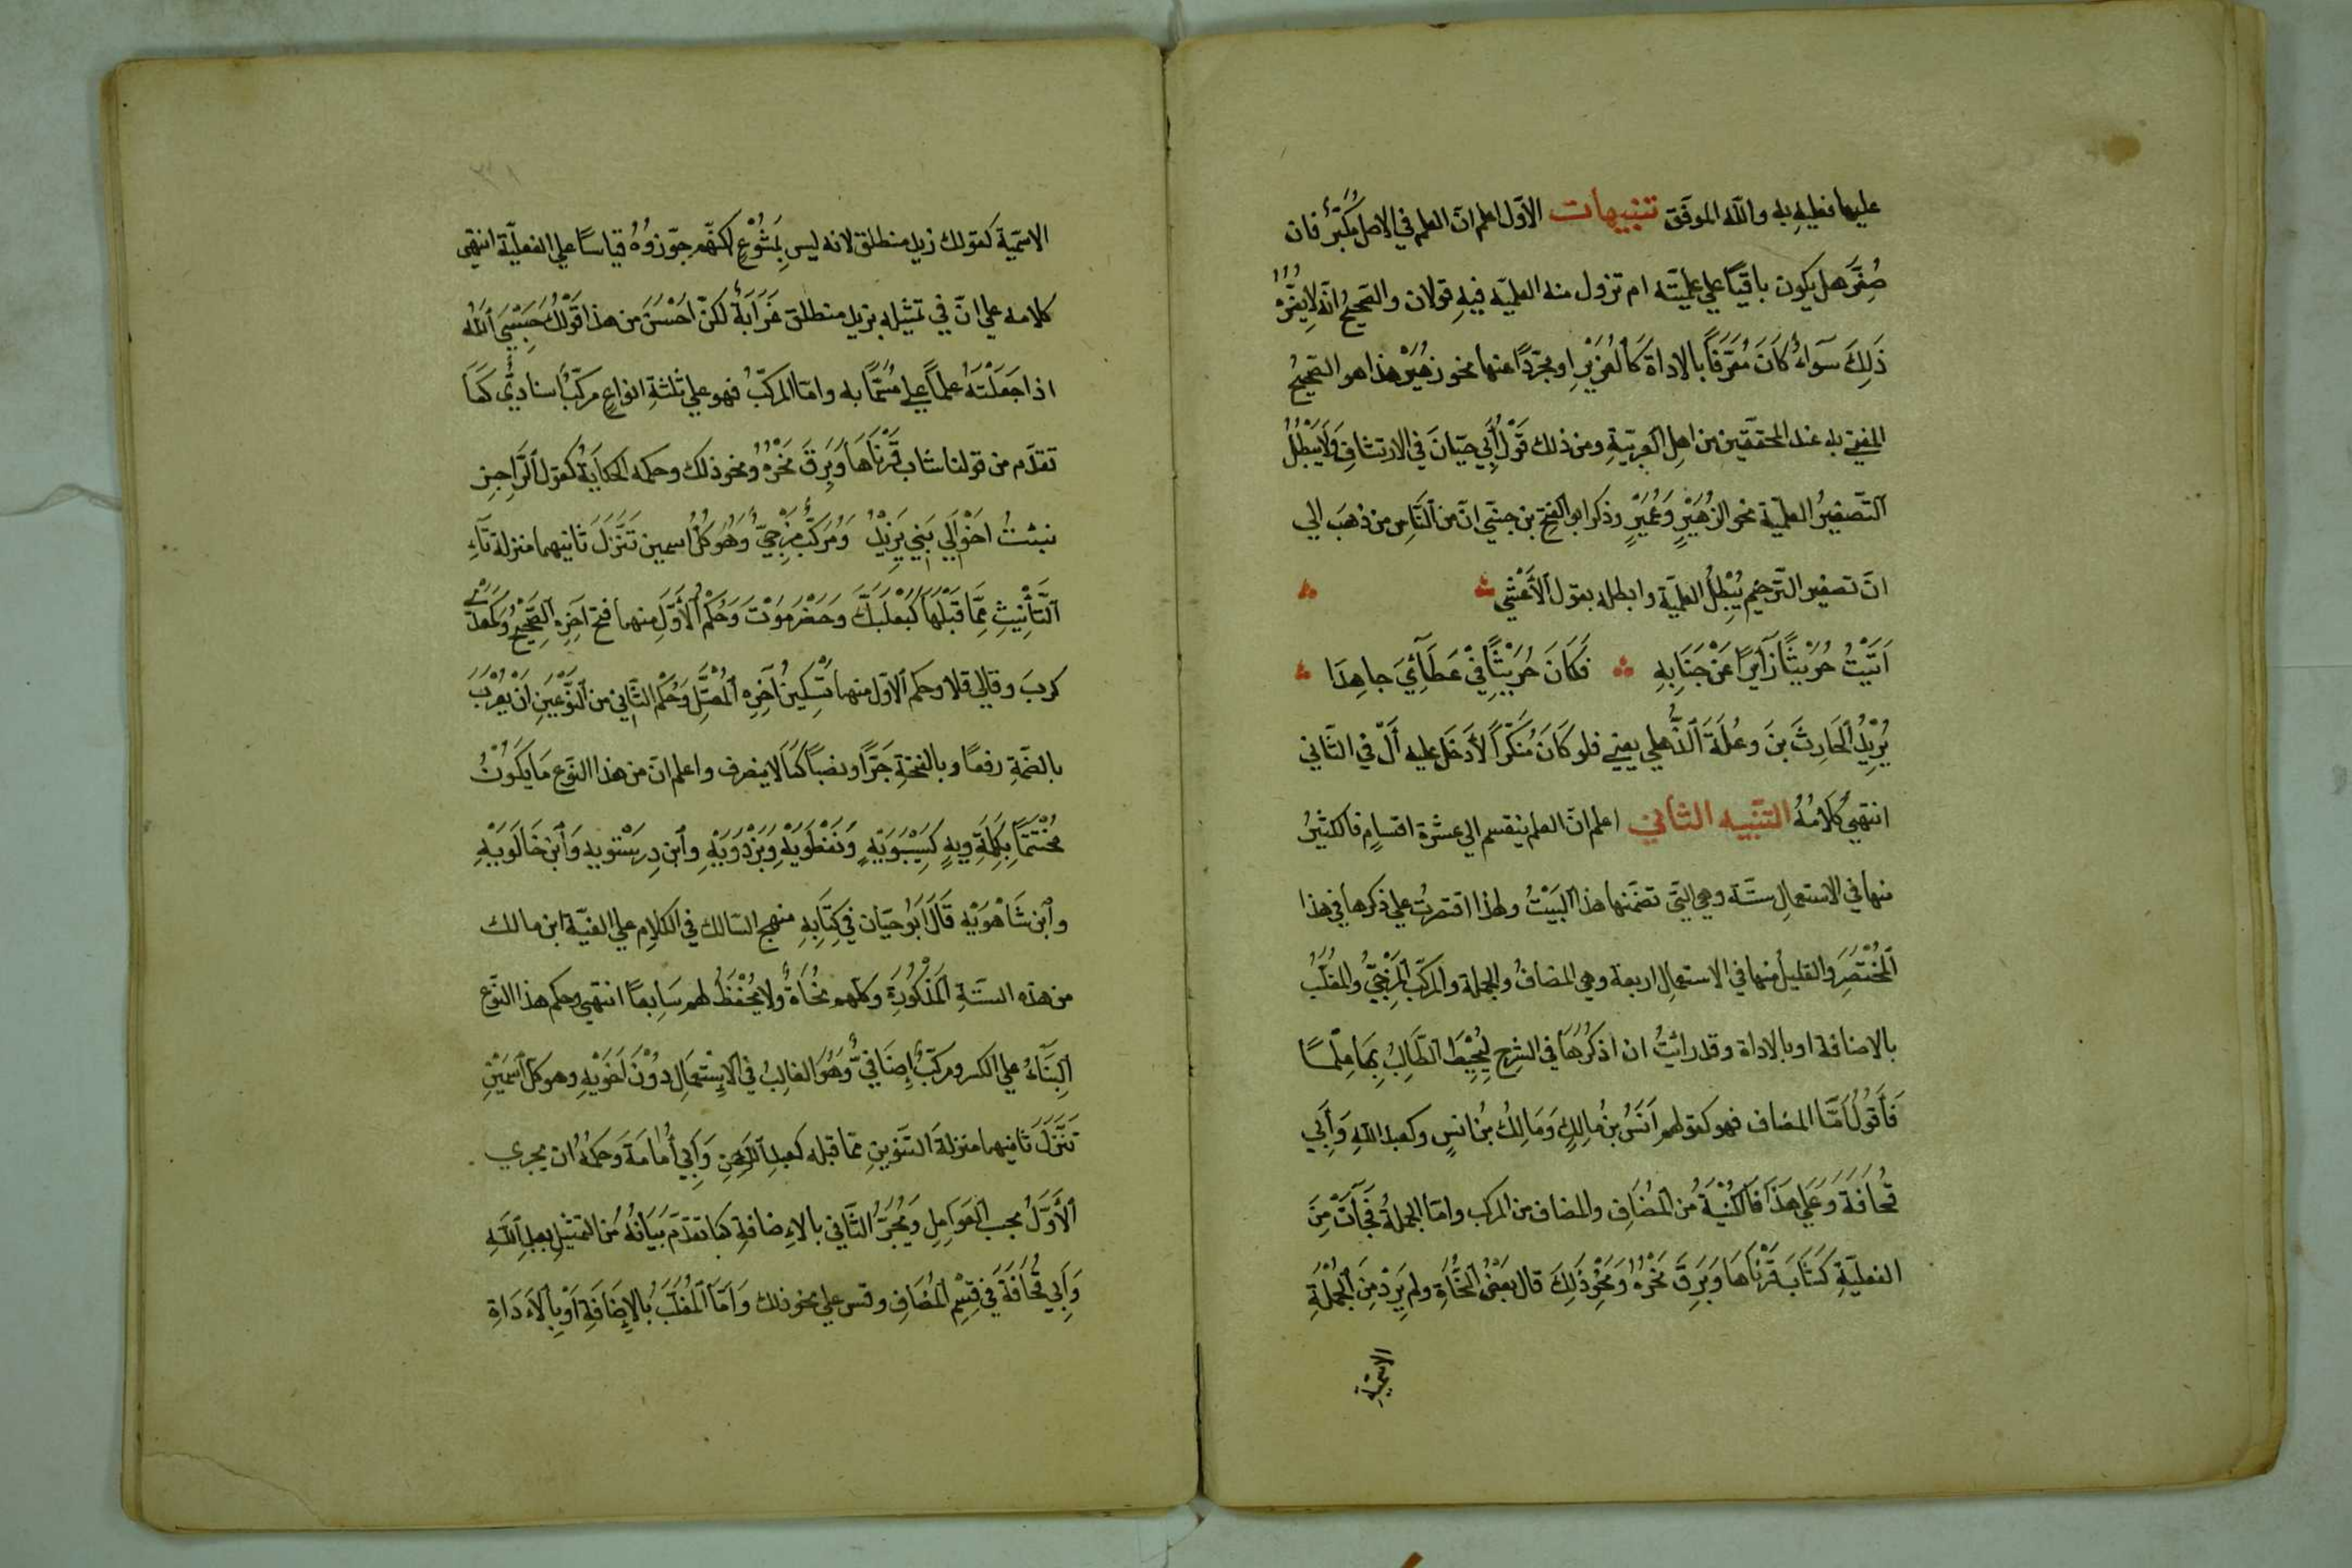 عليها فعليه به والله الموفق تنبيهات الاوّل اعلم انّ العلم في الاصل مُكبَّرٌ فان
صُغِّرَ هل يكون باقيًا علي علميّته ام تزول منه العلميّه فيهِ قولان والصّحيحُ انّه لا يغيّرُهُ
ذَلِكَ سَوَاءٌ كَانَ مُعَرَّفًا بالاداة كَالْعُزَيْرِ او مجرّدًا عنها نحو زهَيْرٍ هذا هو الصّحيحُ
المفتي به عند المحققين من اهلِ العربيّةِ ومن ذلك قَوْلُ أَبِي حيّانَ في الارتشافِ وَلَا يُبْطِلُ
اَلتَّصْغِيرُ العلميّة نحو الزهَيْرِ وَعُمَيْرٍ وذكر ابو الفتح بن جنّي انّ من النَّاسِ من ذهبَ الي
انّ تصغير التّرخيم يُبْطِلُ العلميّة وابطله بقول الأَعْشي
اَتَيْتُ حُرَيْثًا زَآئِرًا عَنْ جَنَابِهِ فَكَانَ حُرَيْثٌ فِيْ عَطَآئِيَ جَاهِدَا
يُرِيْدُ الْحَارِثَ بنَ وعُلَةَ الذُّهلي يعني فلو كَانَ مُنَكّرًا لَأَدخَل عليه اَلْ في الثّاني
انتهي كَلَامُهُ التنبيه الثاني اعلم انّ العلم ينقسم الي عشرة اقسامٍ فالكثيرُ
منها في الاستعمالِ ستّة وهي الّتي تضمّنها هذا البَيْتُ ولهذا اقتصرتُ علي ذكرها في هذا
الْمُخْتَصَرِ والقليلُ منها في الاستعمال اربعة وهي المضافُ والجملة والمركّب الْمَزْجِيُّ والمغلّبُ
بالاضافة او بالاداة وقد رائيتُ ان اذكُرَهَا في الشرح لِيُحِيْطَ الطَّالِبُ بِهَا عِلْمًا
فَأَقُولُ اَمَّا المضاف فهو كقولهم اَنَسُ بنُ مالِكٍ وَمَالِكُ بنُ انسٍ وكعبد اللهِ وَأَبِي
قُحَافَةَ وَعَلَي هَذَا فَالكُنْيَةُ مِن الْمُضَافِ والمضاف من المركب وامّا الجملةُ فَجَآءَتْ مِنَ
الفعليّةِ كَشَابَ قَرْنَاهَا وَبَرِقَ نَحْرُهُ وَنَحْوِ ذَلِكَ قال بَعْضُ النُّحَاةِ ولم يَرِدْ مِنَ الْجُمْلَةِ
الاسميّةِ
الاسميّة كقولك زيد منطلق لانه ليس بِمَسْمُوْعٍ لكنّهم جوّزوهُ قياسًا علي الفعليّة انتهي
كلامه علي انّ في تمثيله بزيد منطلق غَرَابَةً لكنّ احْسَنَ من هذا قَوْلُكَ حَسْبِيَ اَللّهُ
اذا جَعَلْتَهُ علمًا علي مُسَمًّا به وامّا المركّبُ فهو علي ثلثةِ انواعٍ مركّبٌ اسناديٌّ كَمَا
تقدّم من قولنا شاب قَرْنَاهَا وَبَرِقَ نَحْرُهُ ونحو ذلك وحكمه الحكايةُ كقول الرَّاجِزِ
نبئتُ اخْوالِي بَنِي يَزِيْدُ وَمُرَكَّبٌ مَزْجِيٌّ وَهُوَ كلُّ اسمين تَنَزَّلَ ثانيهما منزلة تَآءِ
التَّأْنِيْثِ مِمَّا قَبْلَهَا كَبَعْلَبَكَّ وَحَضْرَمَوْتَ وَحُكْمُ الْأَوَّلِ منهما فتح آخِرِهِ الصَّحِيْحِ وَكَمَعْدِي
كربَ وقالي قلا وحكم الاوّل منهما تَسْكِينُ آخِرِهِ الْمُعْتَلِّ وَحُكْمُ الثَّاني من النَّوْعَيْنِ اَنْ يُعْرَبَ
بالضّمّةِ رفعًا وبالفتحةِ جَرًّا ونصبًا كمَا لا ينصرف واعلم انّ من هذا النّوع مَا يَكُوْنُ
مُخْتَتَمًا بِكَلِمَةِ ويهٍ كَسِيْبَوَيْهِ وَنَفْطَوَيْهِ وَبَرْزَوَيْهِ وابن دِرِسْتويه وَابْنِ خَالَوَيْهِ
وابن شَاهَوَيْهِ قَالَ اَبُو حيّان في كِتَابِهِ منهج السّالك في الكلامِ علي الفيّة ابن مالك
من هذه السّتّةِ الْمَذْكُوْرَةِ وكلّهم نُحَاةٌ ولا يُحْفَظُ لهم سَابِعًا انتهي وحكم هذا النّوع
الْبِنَآءُ علي الكسر ومركّبٌ إِضَافِيٌّ وَهُوَ الغالِبُ في الْاِسْتِعْمَالِ دُوْنَ اَخَوَيْهِ وهو كلّ اسْمَيْنِ
تَنَزَّلَ ثَانيهما منزلةَ التّنوينِ ممّا قبله كعبدِ الرّحمنِ وَاَبِي أُمَامَةَ وحكمُهُ ان يجري
الأَوَّلُ بحسب العَوَامِلِ وَيُجَرَّ الثَّاني بالاِضافةِ كما تقدّمَ بَيَانُهُ مِنَ التّمثيلِ بعبدِ اللّهِ
وَاَبِي قُحَافَةَ فِي قِسْمِ الْمُضَافِ وقس علي نحو ذلك وَاَمَّا الْمُغَلَّبُ بالْإِضَافَةِ اَوْ بِالْاَدَاةِ